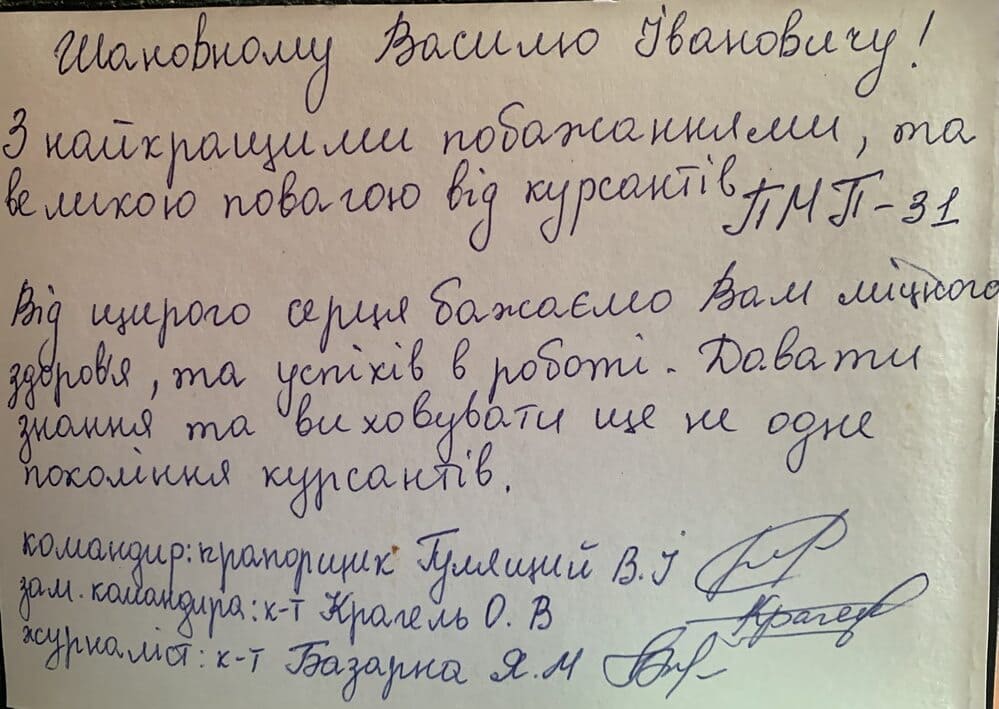 Шановному Василю Івановичу!
З найкращими побажаннями, та
великою повагою від курсантів ПМП-31
Від щирого серця бажаємо Вам міцного
здоров'я, та успіхів в роботі. Давати
знання та виховувати ще не одне
покоління курсантів.
командир: прапорщик Гуляций В.І
зам. командира: к-т Крагель О. В
Крагель
журналіст: к-т Базарна Я.М